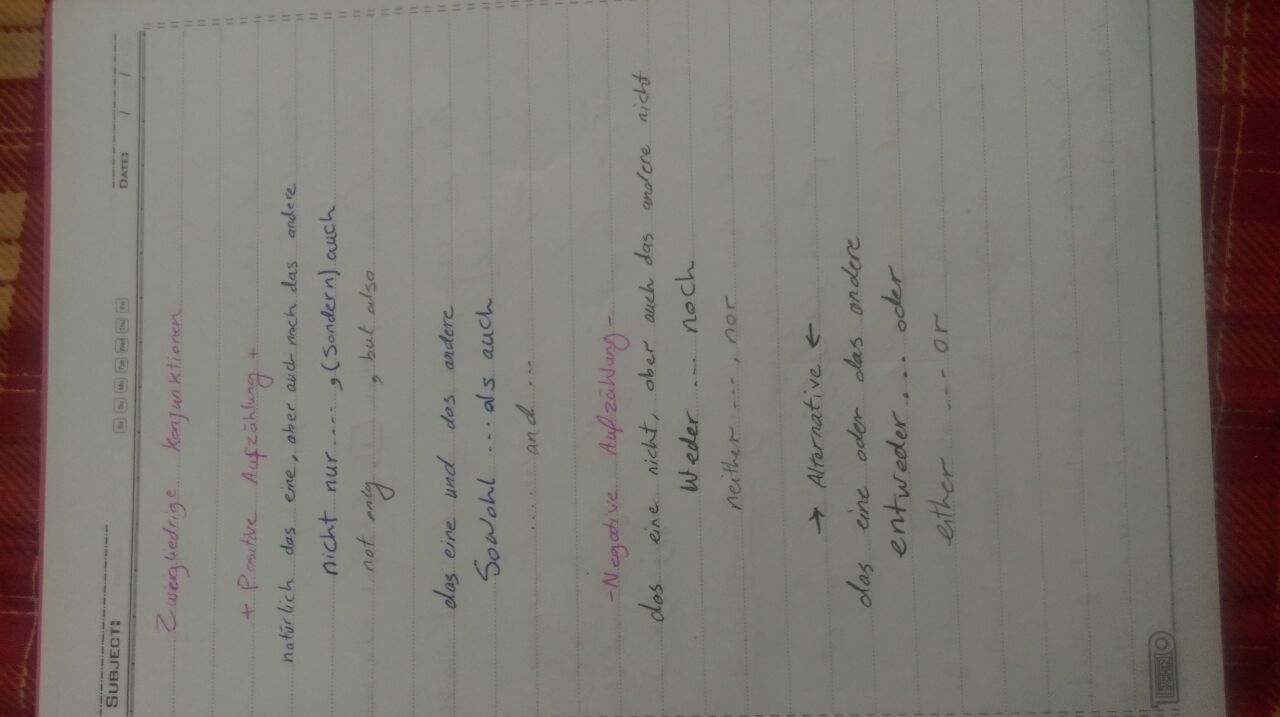 SUBJECT:
DATE: / /
Sa Su Mo Tue Wed Thu Fri
Zweigliedrige Konjunktionen
+ Positive Aufzählung +
natürlich das eine, aber auch noch das andere
nicht nur ...., (sondern) auch
not only , but also
das eine und das andere
Sowohl ... als auch
.... and ...
- Negative Aufzählung -
das eine nicht, aber auch das andere nicht
Weder ... noch
neither ---, nor
→ Alternative ←
das eine oder das andere
entweder .... oder
either --- or